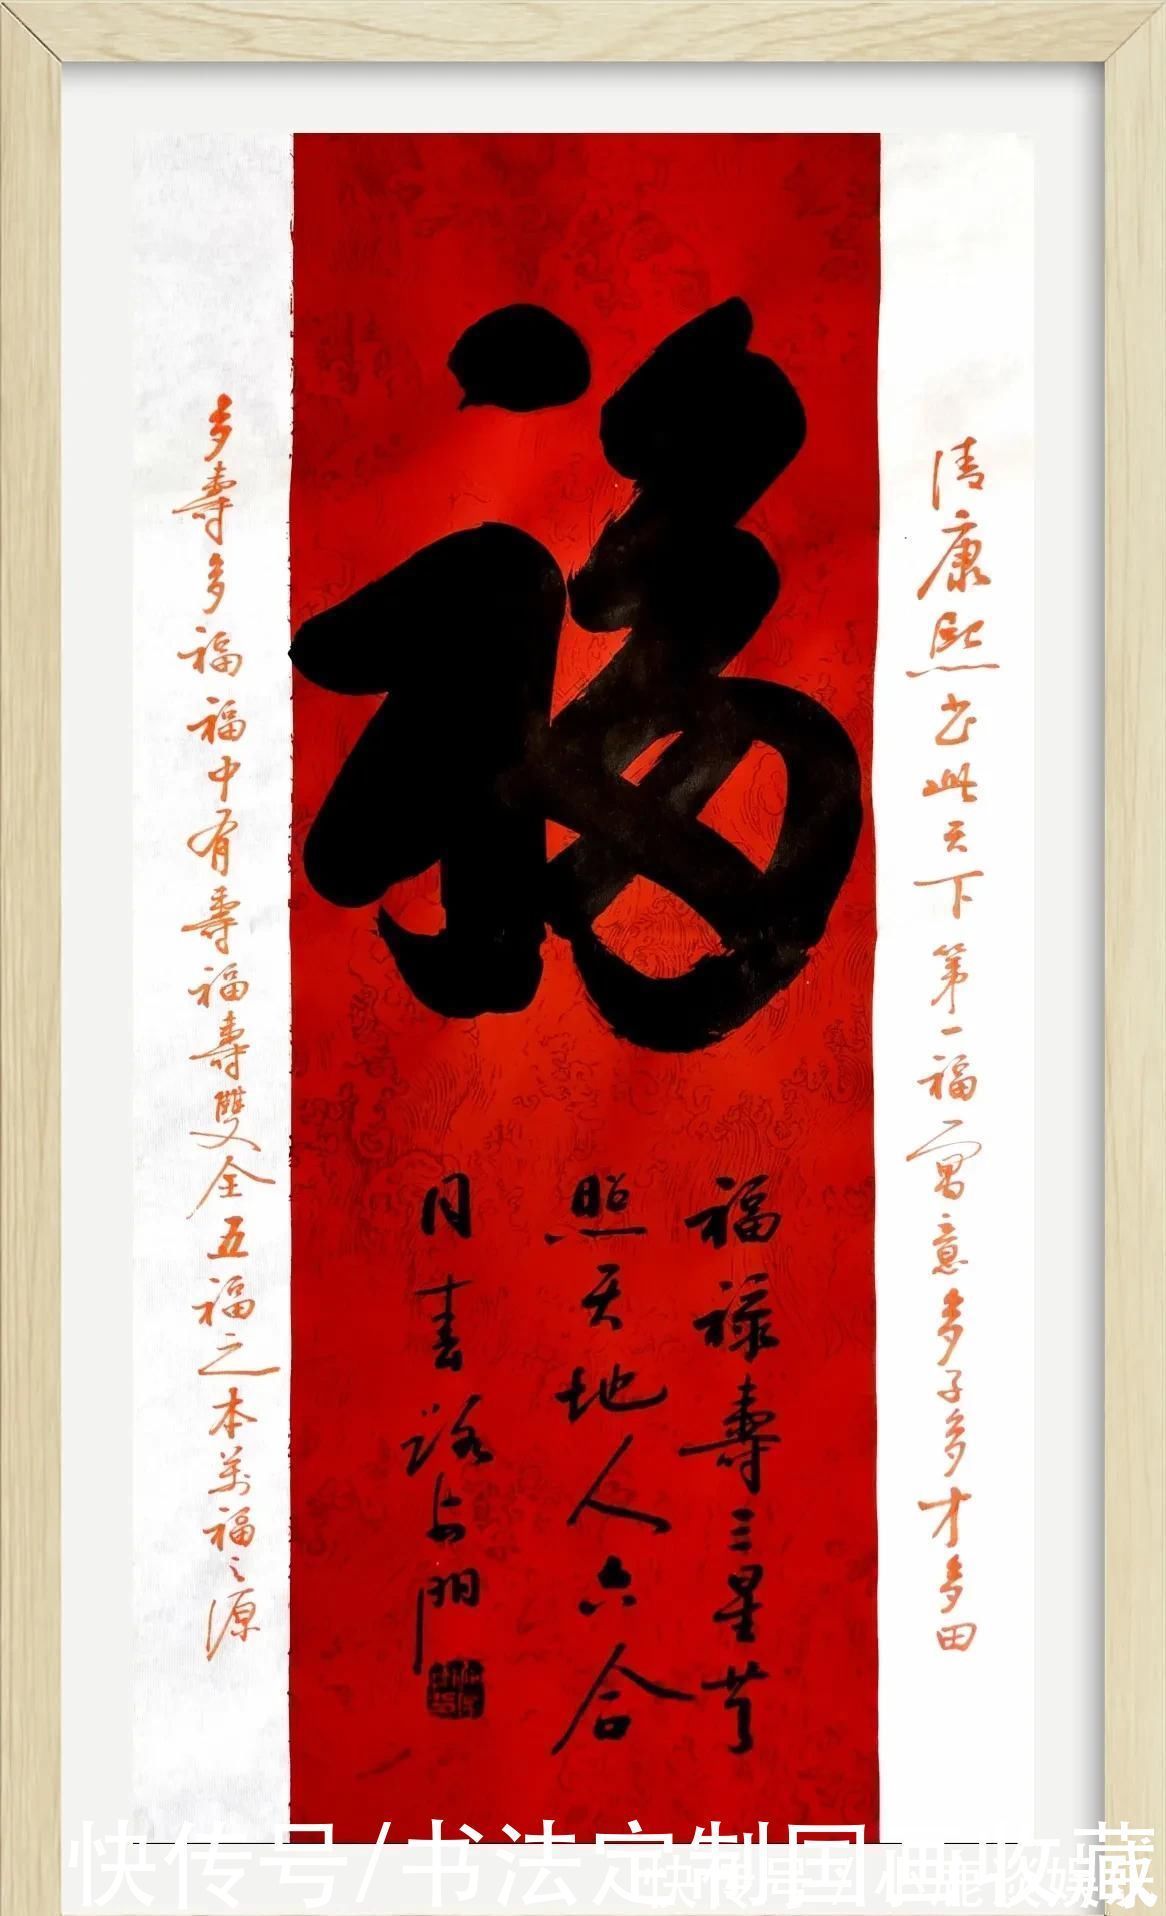 福
清康熙书此天下第一福寓意多子多才多田
多壽多福福中有壽福壽雙全五福之本萬福之源
福禄壽三星共
照天地人六合
同春
快传号/书法定制国画收藏